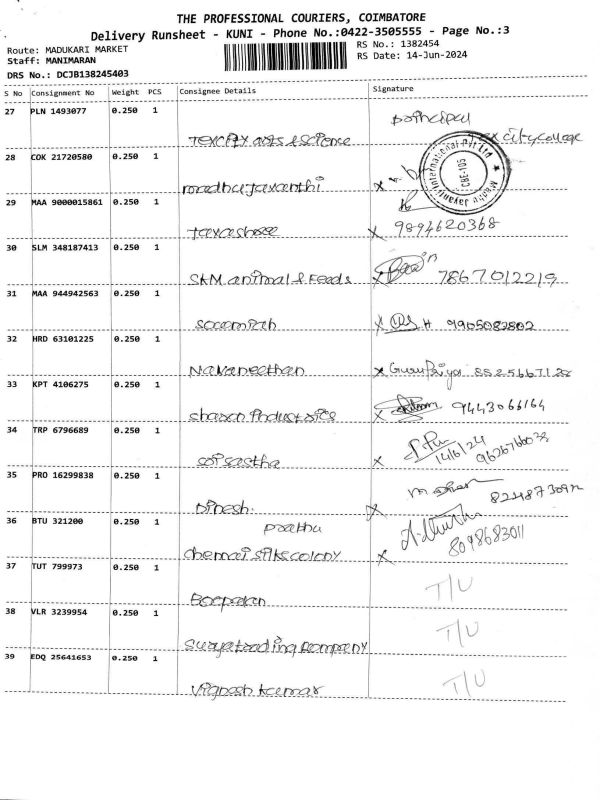 THE PROFESSIONAL COURIERS, COIMBATORE
Delivery Runsheet - KUNI - Phone No.:0422-3505555 - Page No.:3
Route: MADUKARI MARKET
RS No.: 1382454
Staff: MANIMARAN
RS Date: 14-Jun-2024
DRS No.: DCJB138245403
S No Consignment No Weight PCS Consignee Details Signature
27 PLN 1493077 0.250 1
principal
Texcity arts & science
Tex city college
28 COK 21720580 0.250 1
Madhu Jayanthi International Pvt Ltd
CBE-105
madhu jayanthi x
29 MAA 9000015861 0.250 1
x 9894620368
30 SLM 348187413 0.250 1
SKM animal & Feeds x 7867012219
31 MAA 944942563 0.250 1
x H 9905082802
32 HRD 63101225 0.250 1
Navaneethan x Guru Priya
33 KPT 4106275 0.250 1
x 9443066164
34 TRP 6796689 0.250 1
x 14/6/24
35 PRO 16299838 0.250 1
Dinesh x
36 BTU 321200 0.250 1
prathu
8098683011
x
37 TUT 799973 0.250 1
T/U
38 VLR 3239954 0.250 1
T/U
Surya trading company
39 EDQ 25641653 0.250 1
T/U
Vignesh kumar